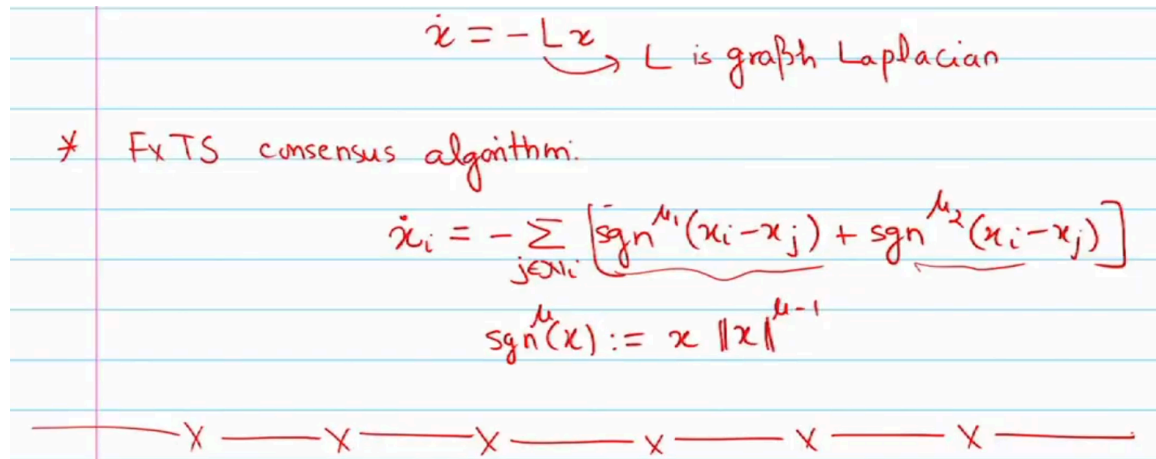 ẋ = -Lx → L is graph Laplacian
* FxTS consensus algorithm:
ẋᵢ = - Σ_{j∈Nᵢ} [sgn^{μ₁}(xᵢ-xⱼ) + sgn^{μ₂}(xᵢ-xⱼ)]
sgn^{μ}(x) := x ‖x‖^{μ-1}
X X X X X X